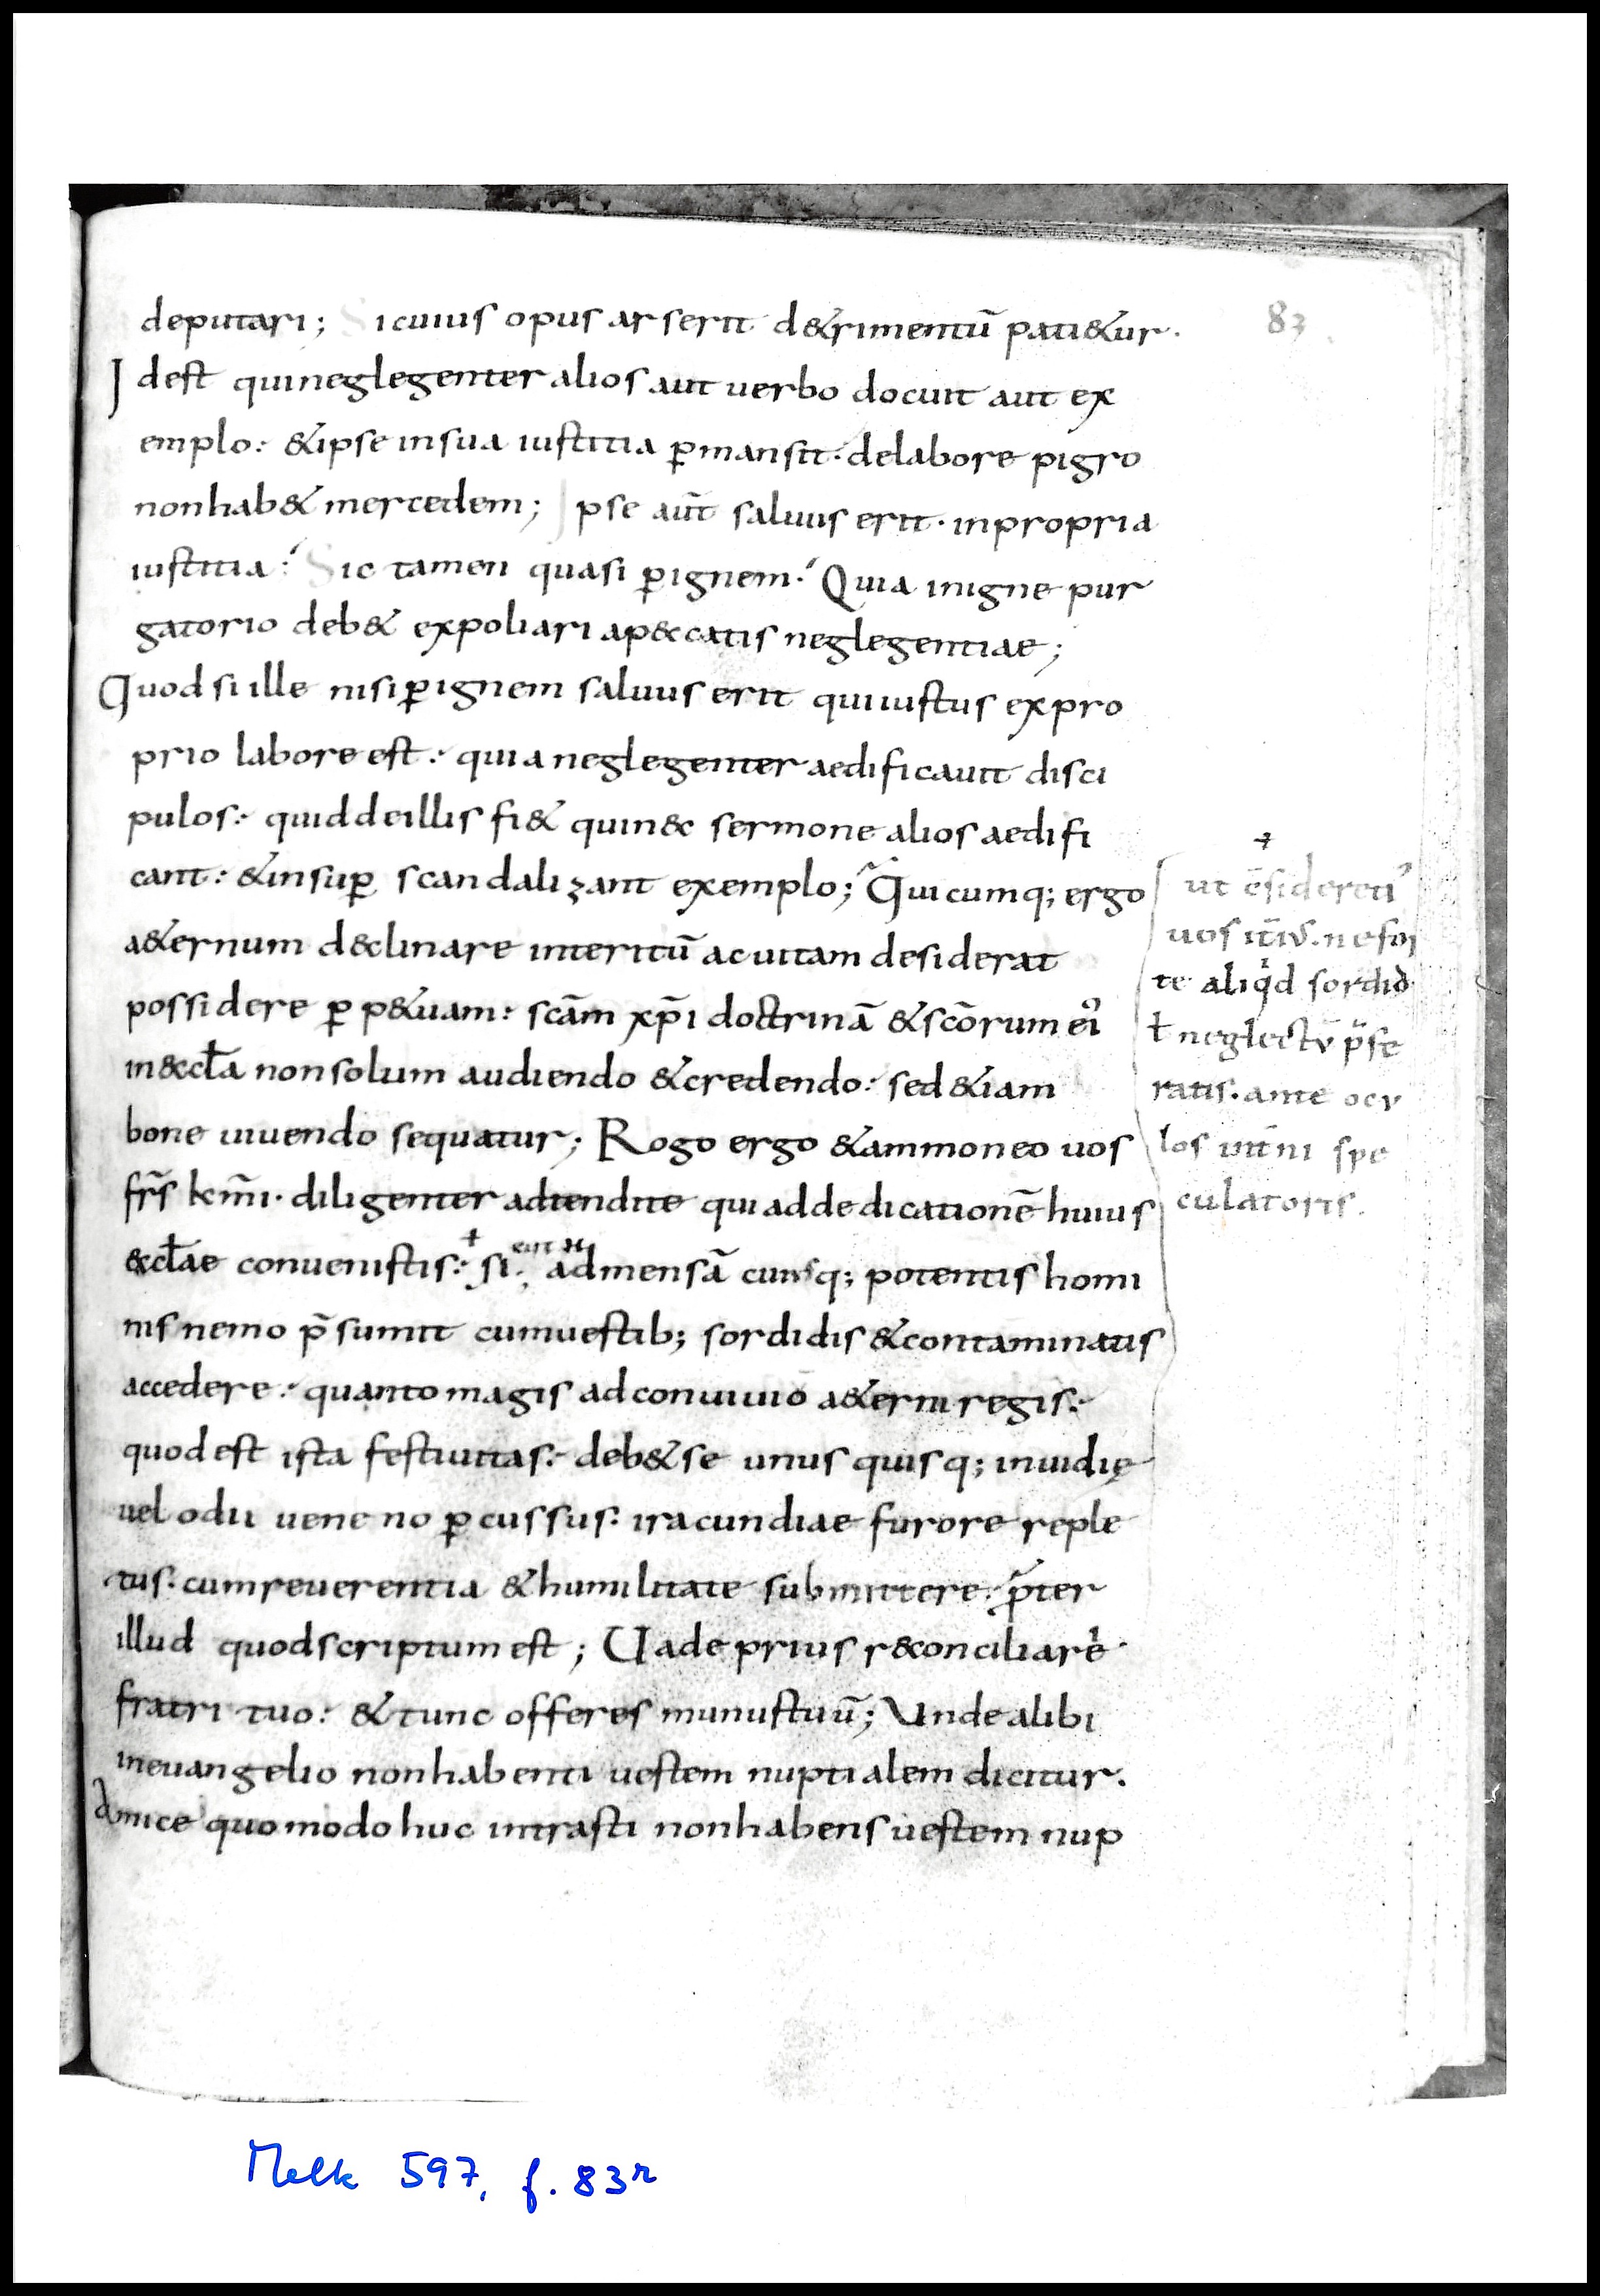 deputari; Sicuius opus arserit d&rimentū pati&ur.
83
Idest qui neglegenter alios aut uerbo docuit aut ex
emplo: &ipse in sua iustitia ꝑmansit: de labore pigro
non hab& mercedem; Ipse aut̄ saluus erit. in propria
iustitia: Sic tamen quasi ꝑ ignem. Quia in igne pur
gatorio deb& expoliari a p&catis neglegentiae;
Quod si ille nisi ꝑ ignem saluus erit qui iustus ex pro
prio labore est: quia neglegenter aedificauit disci
pulos: quid de illis fi& qui n&c sermone alios aedifi
cant: &insuꝑ scandalizant exemplo; Quicumq; ergo
a&ernum d&clinare interitū ac uitam desiderat
possidere ꝑp&uam: scām xp̄i doctrinā &scōrum ei᾿
in &cƚa non solum audiendo &credendo: sed &iam
bone uiuendo sequatur; Rogo ergo &ammoneo uos
fr̄s km̄i. diligenter adtendite qui ad dedicationē huius
&cƚae conuenistis: + si: ad mensā cuiusq; potentis homi
nis nemo p̄sumit cum uestib; sordidis &contaminatis
accedere: quanto magis ad conuiuiō a&erni regis:
quod est ista festiuitas: deb& se unus quisq; inuidię
uel odii ueneno ꝑcussus: iracundiae furore reple
tus: cum reuerentia &humilitate submittere: p̄ter
illud quod scriptum est; Uade prius r&conciliare
fratri tuo: &tunc offeres munus tuū; Unde alibi
in euangelio non habenti uestem nuptialem dicitur.
Amice quomodo huc intrasti non habens uestem nup
+
ut c̄sideret᾿
uos it̄iv̄. ne for
te aliqͥd sordid
ƚ neglectū p̄se
ratis. ante ocu
los int̄ni spe
culatoris.
Melk 597, f. 83r